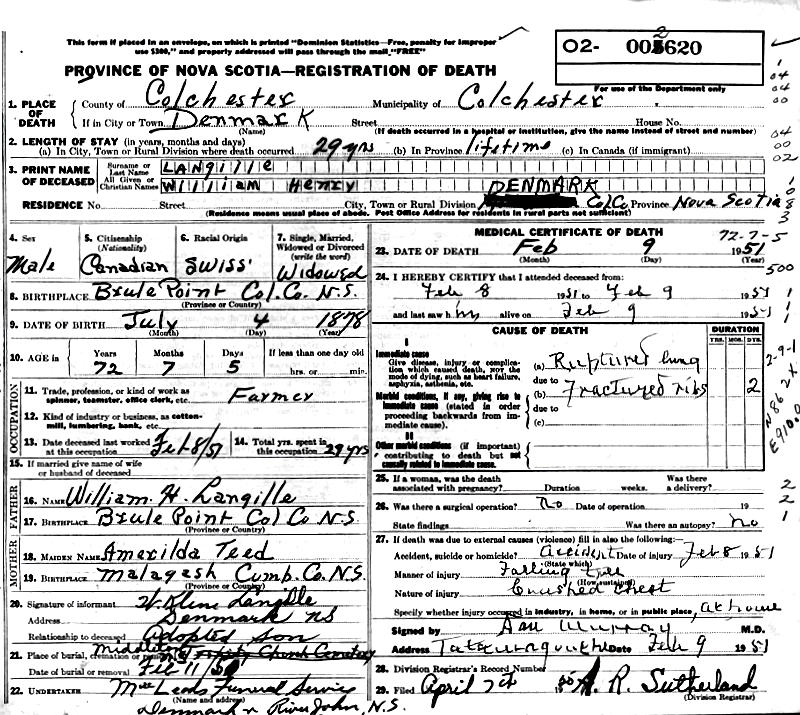 This form if placed in an envelope, on which is printed "Dominion Statistics—Free, penalty for improper
use $300," and properly addressed will pass through the mail, "FREE"
02- 002620
For use of the Department only
PROVINCE OF NOVA SCOTIA—REGISTRATION OF DEATH
1. PLACE OF DEATH County of Colchester Municipality of Colchester
If in City or Town Denmark (Name) Street House No.
(If death occurred in a hospital or institution, give the name instead of street and number)
2. LENGTH OF STAY (in years, months and days)
(a) In City, Town or Rural Division where death occurred 29 yrs (b) In Province lifetime (c) In Canada (if immigrant)
3. PRINT NAME OF DECEASED Surname or Last Name LANgille
All Given or Christian Names William Henry
RESIDENCE No. Street City, Town or Rural Division DENMARK Col Co Province Nova Scotia
(Residence means usual place of abode. Post Office Address for residents in rural parts not sufficient)
4. Sex Male
5. Citizenship (Nationality) Canadian
6. Racial Origin Swiss
7. Single, Married, Widowed or Divorced (write the word) Widowed
8. BIRTHPLACE Brule Point Col. Co. N.S.
(Province or Country)
9. DATE OF BIRTH July 4 1878
(Month) (Day) (Year)
10. AGE in Years 72 Months 7 Days 5 If less than one day old hrs. or min.
OCCUPATION
11. Trade, profession, or kind of work as spinner, teamster, office clerk, etc. Farmer
12. Kind of industry or business, as cotton-mill, lumbering, bank, etc.
13. Date deceased last worked at this occupation Feb 8/51
14. Total yrs. spent in this occupation 29 yrs
15. If married give name of wife or husband of deceased
FATHER
16. NAME William H. Langille
17. BIRTHPLACE Brule Point Col Co N.S.
(Province or Country)
MOTHER
18. MAIDEN NAME Amerilda Teed
19. BIRTHPLACE Malagash Cumb. Co. N.S.
(Province or Country)
20. Signature of informant H. Kline Langille
Address Denmark NS
Relationship to deceased Adopted Son
21. Place of burial, cremation or removal Church Cemetery
Date of burial or removal Feb 11/51
22. UNDERTAKER Funeral Service
(Name and address)
Denmark River John, N.S.
MEDICAL CERTIFICATE OF DEATH
72-7-5
23. DATE OF DEATH Feb 9 1951
(Month) (Day) (Year)
24. I HEREBY CERTIFY that I attended deceased from:
Feb 8 1951 to Feb 9 1951
and last saw him alive on Feb 9 1951
CAUSE OF DEATH DURATION
YRS. MOS. DYS.
I
Immediate cause
Give disease, injury or complication which caused death, not the mode of dying, such as heart failure, asphyxia, asthenia, etc.
(a) Ruptured lung
due to
Morbid conditions, if any, giving rise to immediate cause (stated in order proceeding backwards from immediate cause).
(b) Fractured ribs 2
due to
(c)
II
Other morbid conditions (if important) contributing to death but not causally related to immediate cause.
25. If a woman, was the death associated with pregnancy? Duration weeks. Was there a delivery?
26. Was there a surgical operation? No Date of operation 19
State findings Was there an autopsy? no
27. If death was due to external causes (violence) fill in also the following:—
Accident, suicide or homicide? accident Date of injury Feb 8 1951
(State which)
Manner of injury Falling tree
(How sustained)
Nature of injury Crushed chest
Specify whether injury occurred in industry, in home, or in public place, at home
Signed by Dan Murray M.D.
Address Tatamagouche Date Feb 9 1951
28. Division Registrar's Record Number
29. Filed April 7th A. R. Sutherland
(Division Registrar)